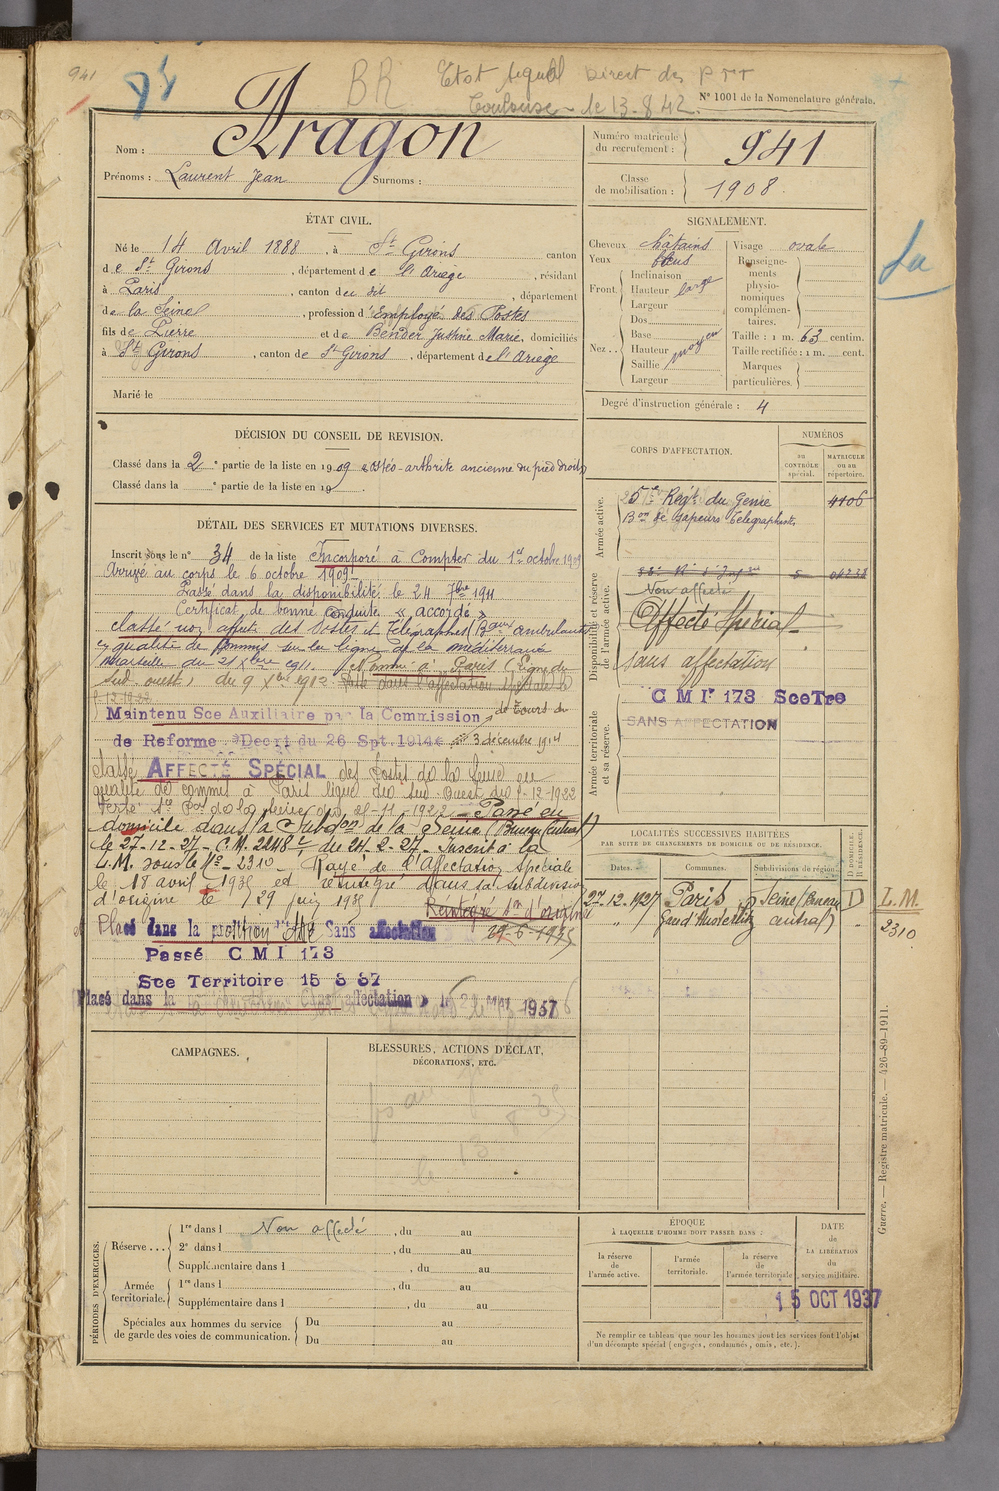 941
BR
Etat Signal Direct des PTT
Toulouse - le 13.8.42
N° 1001 de la Nomenclature générale.
Nom : Aragon
Prénoms : Laurent Jean Surnoms :
Numéro matricule du recrutement : 941
Classe de mobilisation : 1908
ÉTAT CIVIL.
Né le 14 Avril 1888, à St Girons canton
de St Girons, département de l'Ariège, résidant
à Paris, canton du dit, département
de la Seine, profession d'Employé des Postes
fils de Pierre et de Bender Justine Marie, domiciliés
à St Girons, canton de St Girons, département de l'Ariège
Marié le
SIGNALEMENT.
Cheveux châtains
Yeux bleus
Front. Inclinaison
Hauteur large
Largeur
Nez . . Dos
Base
Hauteur moyen
Saillie
Largeur
Visage ovale
Renseignements physionomiques complémentaires.
Taille : 1 m. 63 centim.
Taille rectifiée : 1 m. cent.
Marques particulières.
Degré d'instruction générale : 4
DÉCISION DU CONSEIL DE REVISION.
Classé dans la 2e partie de la liste en 1909 ostéo-arthrite ancienne du pied droit
Classé dans la e partie de la liste en 19
DÉTAIL DES SERVICES ET MUTATIONS DIVERSES.
Inscrit sous le n° 34 de la liste Incorporé à Compter du 1er octobre 1909
Arrivé au corps le 6 octobre 1909
Passé dans la disponibilité le 24 7bre 1911
Certificat de bonne Conduite « accordé »
classé non affecté des Postes et Télégraphes (Baux ambulants
en qualité de commis sur la ligne de la méditerranée
Marseille du 21 Xbre 1911. Nommé à Paris (ligne du
Sud-ouest) du 9 Xbre 1912
9-12-1922
Maintenu Sce Auxiliaire par la Commission de Tours du
de Reforme Décret du 26 Spt. 1914 3 décembre 1914
classé AFFECTÉ SPÉCIAL des Postes de la Seine en
qualité de commis à Paris ligne du Sud-Ouest du 9-12-1922
25-11-1922 - Passé en
domicile dans la Subdon de la Seine (Bureau Central)
le 27-12-27 - C.M. 2248 du 24-2-27 - Inscrit à la
L.M. sous le N° - 2310 - Rayé de l'Affectation spéciale
le 18 avril 1935 et réintégré dans sa subdivision
d'origine le 29 juin 1935
Réintégré Bon d'origine
29-6-1935
Placé dans la position Sans affectation
Passé CMI 173
Sce Territoire 15 8 37
Placé dans la affectation » le 1937
CORPS D'AFFECTATION.
NUMÉROS
au CONTRÔLE spécial.
MATRICULE ou au répertoire.
Armée active.
25e Regt du Génie 4106
Bon de sapeurs Telegraphistes
Disponibilité et réserve de l'armée active.
Non affecté
Affecté Spécial
sans affectation
Armée territoriale et sa réserve.
CMIr 173 SceTre
SANS AFFECTATION
LOCALITÉS SUCCESSIVES HABITÉES
PAR SUITE DE CHANGEMENTS DE DOMICILE OU DE RÉSIDENCE.
Dates. Communes. Subdivisions de région. D DOMICILE. R RÉSIDENCE.
27.12.1927 Paris Seine (Bureau D L.M.
" " Gare d'Austerlitz central) - 2310
CAMPAGNES.
BLESSURES, ACTIONS D'ÉCLAT, DÉCORATIONS, ETC.
PÉRIODES D'EXERCICES.
Réserve . . . 1re dans l Non affecté, du au
2e dans l , du au
Supplémentaire dans l , du au
Armée territoriale. 1re dans l , du au
Supplémentaire dans l , du au
Spéciales aux hommes du service de garde des voies de communication. Du au
Du au
ÉPOQUE
À LAQUELLE L'HOMME DOIT PASSER DANS :
la réserve de l'armée active.
l'armée territoriale.
la réserve de l'armée territoriale
DATE de LA LIBÉRATION du service militaire.
15 OCT 1937
Ne remplir ce tableau que pour les hommes dont les services font l'objet
d'un décompte spécial (engagés, condamnés, omis, etc.).
Guerre. — Registre matricule. — 426-89-1911.